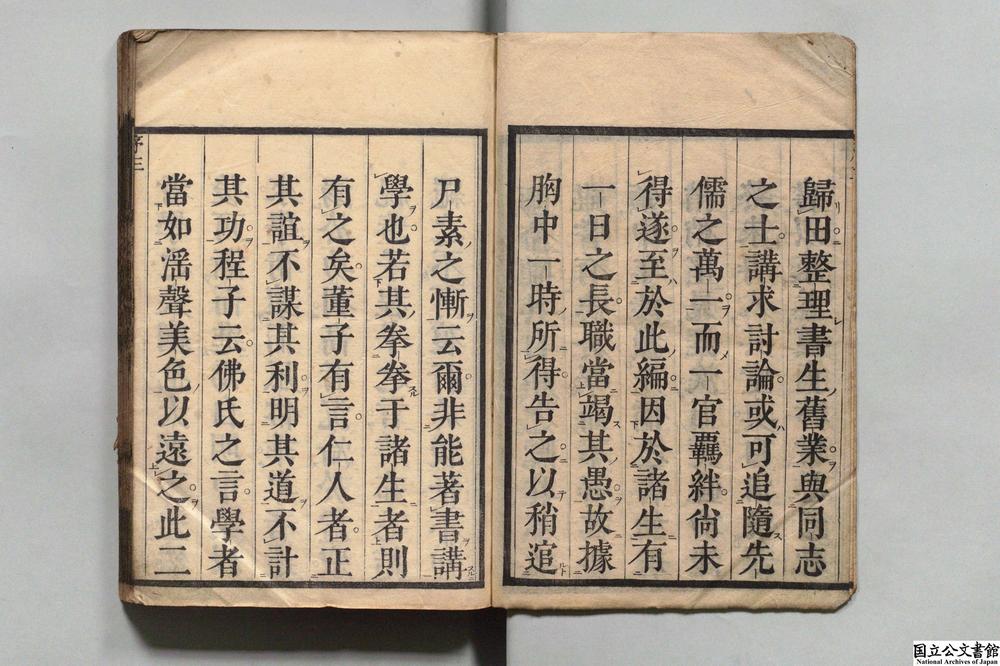 歸田整理書生舊業與同志
之士講求討論或可追隨先
儒之萬一而一官覊絆尙未
得遂至於此編因於諸生有
一日之長職當竭其愚故據
胸中一時所得告之以稍逭
尸素之慚云爾非能著書講
學也若其拳拳于諸生者則
有之矣董子有言仁人者正
其誼不謀其利明其道不計
其功程子云佛氏之言學者
當如滛聲美色以遠之此二
序三
国立公文書館
National Archives of Japan